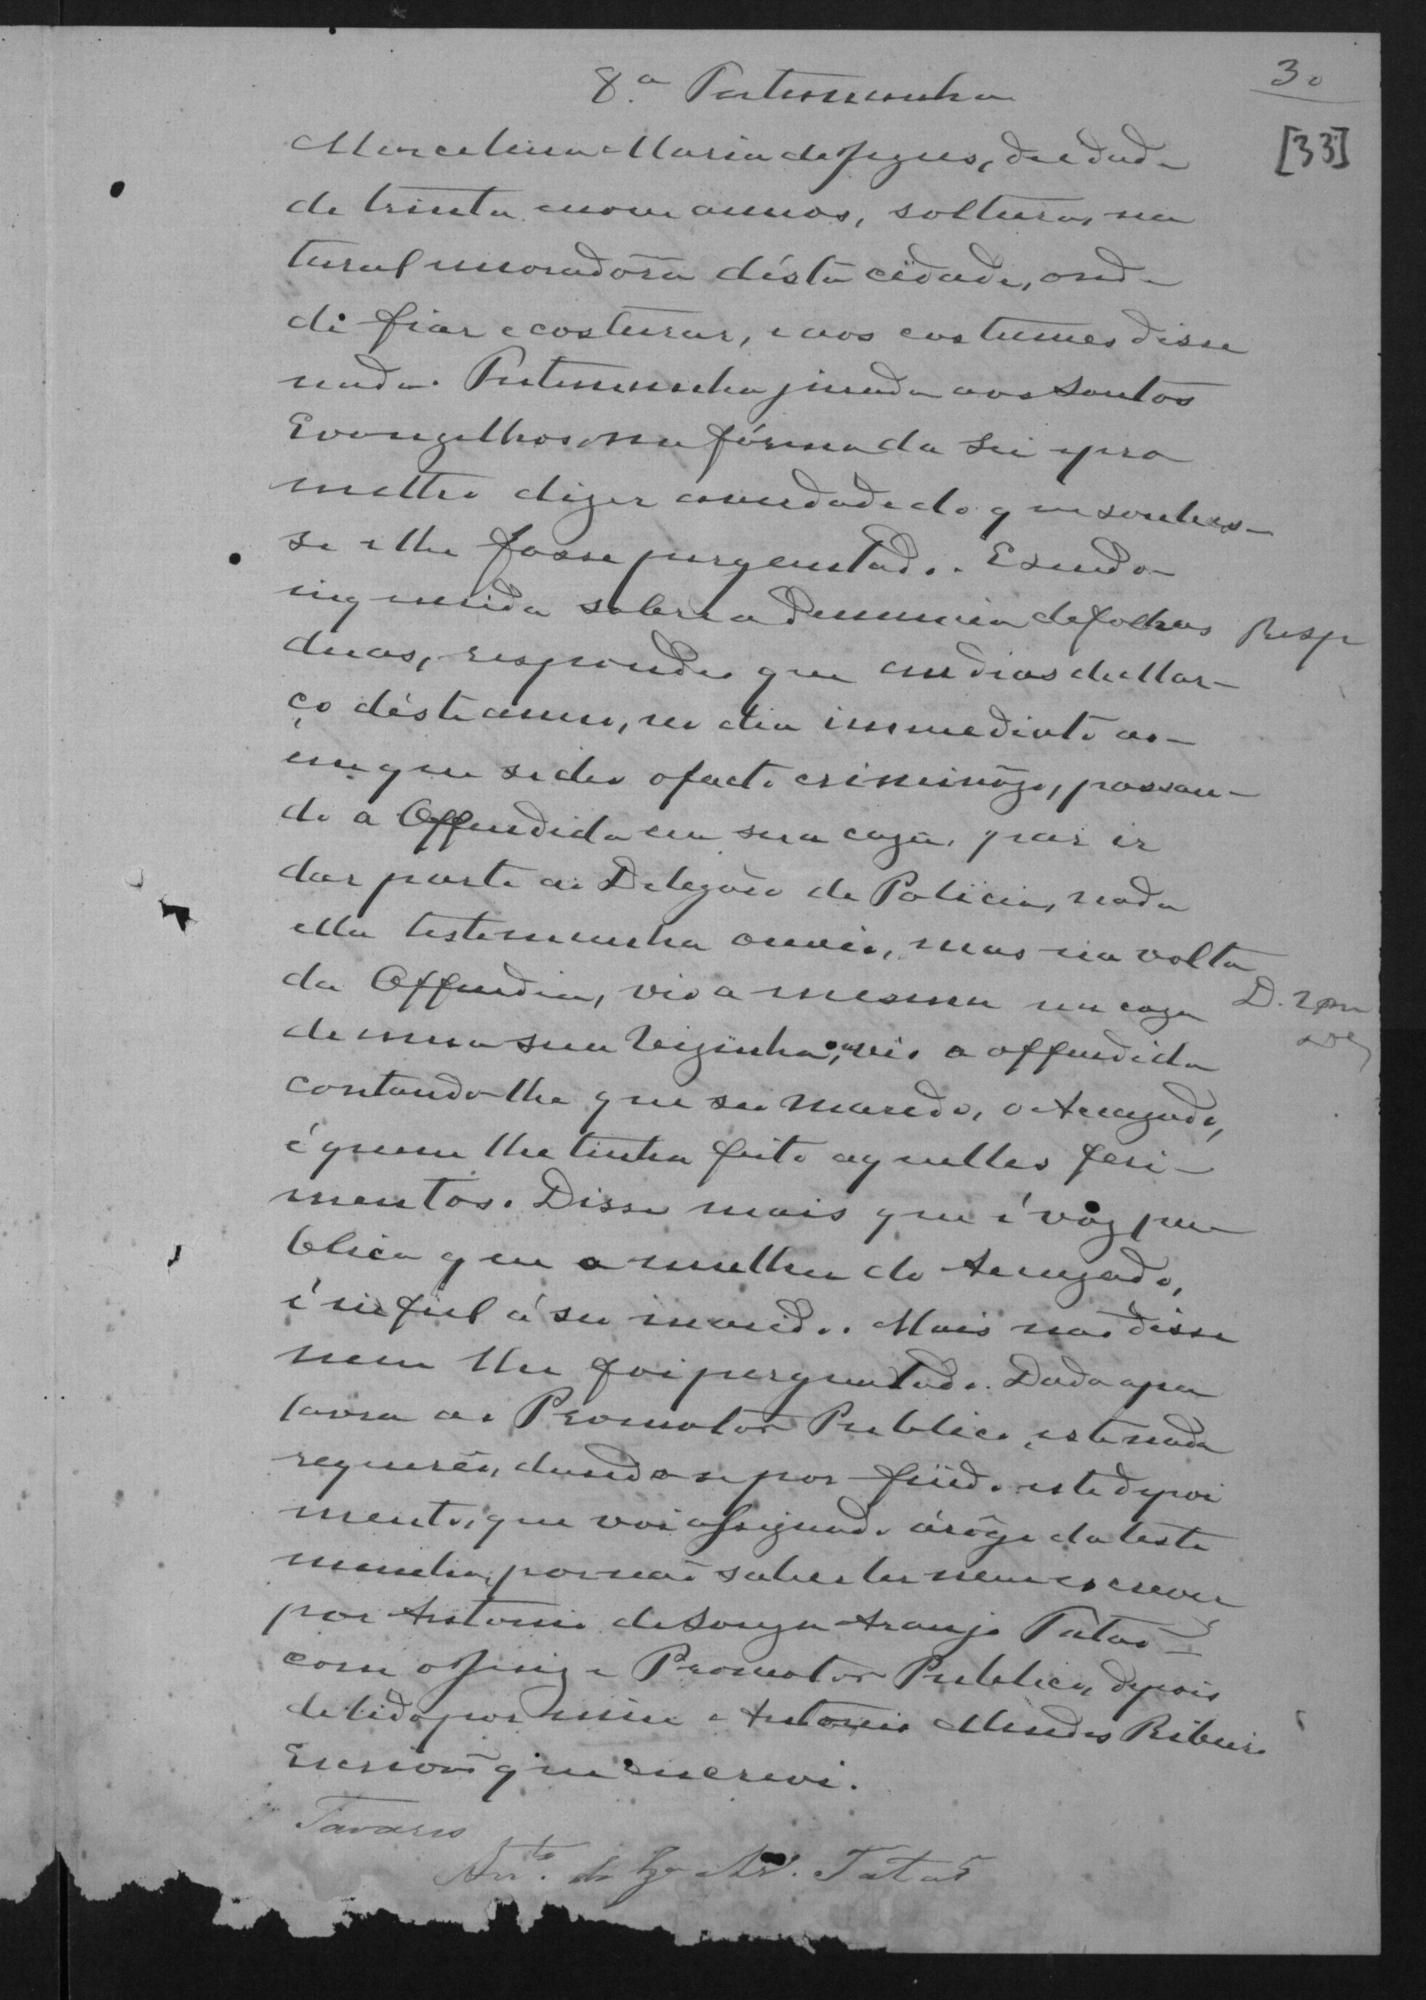 30
[33]
8.ª Testemunha
Marcelina Maria de Jezus, de edade
de trinta e nove annos, solteira, na
tural e moradôra désta cidade, onde
di fiar e costurar, e aos costumes disse
nada. Testemunha jurada aos Santos
Evangelhos na fórma da Lei e pro
metteo dizer a verdade do que soubes-
se e lhe fosse perguntado. E sendo
inquerida sobre a denuncia de folhas
Resp
duas, respondeo que em dias de Mar-
ço déste anno, no dia immediato ao
em que se deo o facto criminôzo, passan-
do a Offendida em sua caza, para ir
dar parte ao Delegado de Policia, nada
ella testemunha ouvio, mas na volta
da Offendida, vio a mesma na caza
D.
de uma sua vizinha, vio a offendida
contando-lhe que seu marido, o Acuzado,
é quem lhe tinha feito aquelles feri-
mentos. Disse mais que é voz pu
blica que a mulher do Acuzado,
é infiel á seu marido. Mais não disse
nem lhe foi perguntado. Dada a pa
lavra ao Promotor Publico, este nada
requereo, dando-se por findo este depoi
mento, que vai assignado á rôgo da teste
munha, por não saber ler nem escrever
por Antonio de Souza Araujo Tatão
com o Juiz e Promotor Publico, depois
de lido por mim Antonio Mendes Ribeiro
Escrivão que escrevi.
Tavares
Anto. de Sza Ar. Tatão